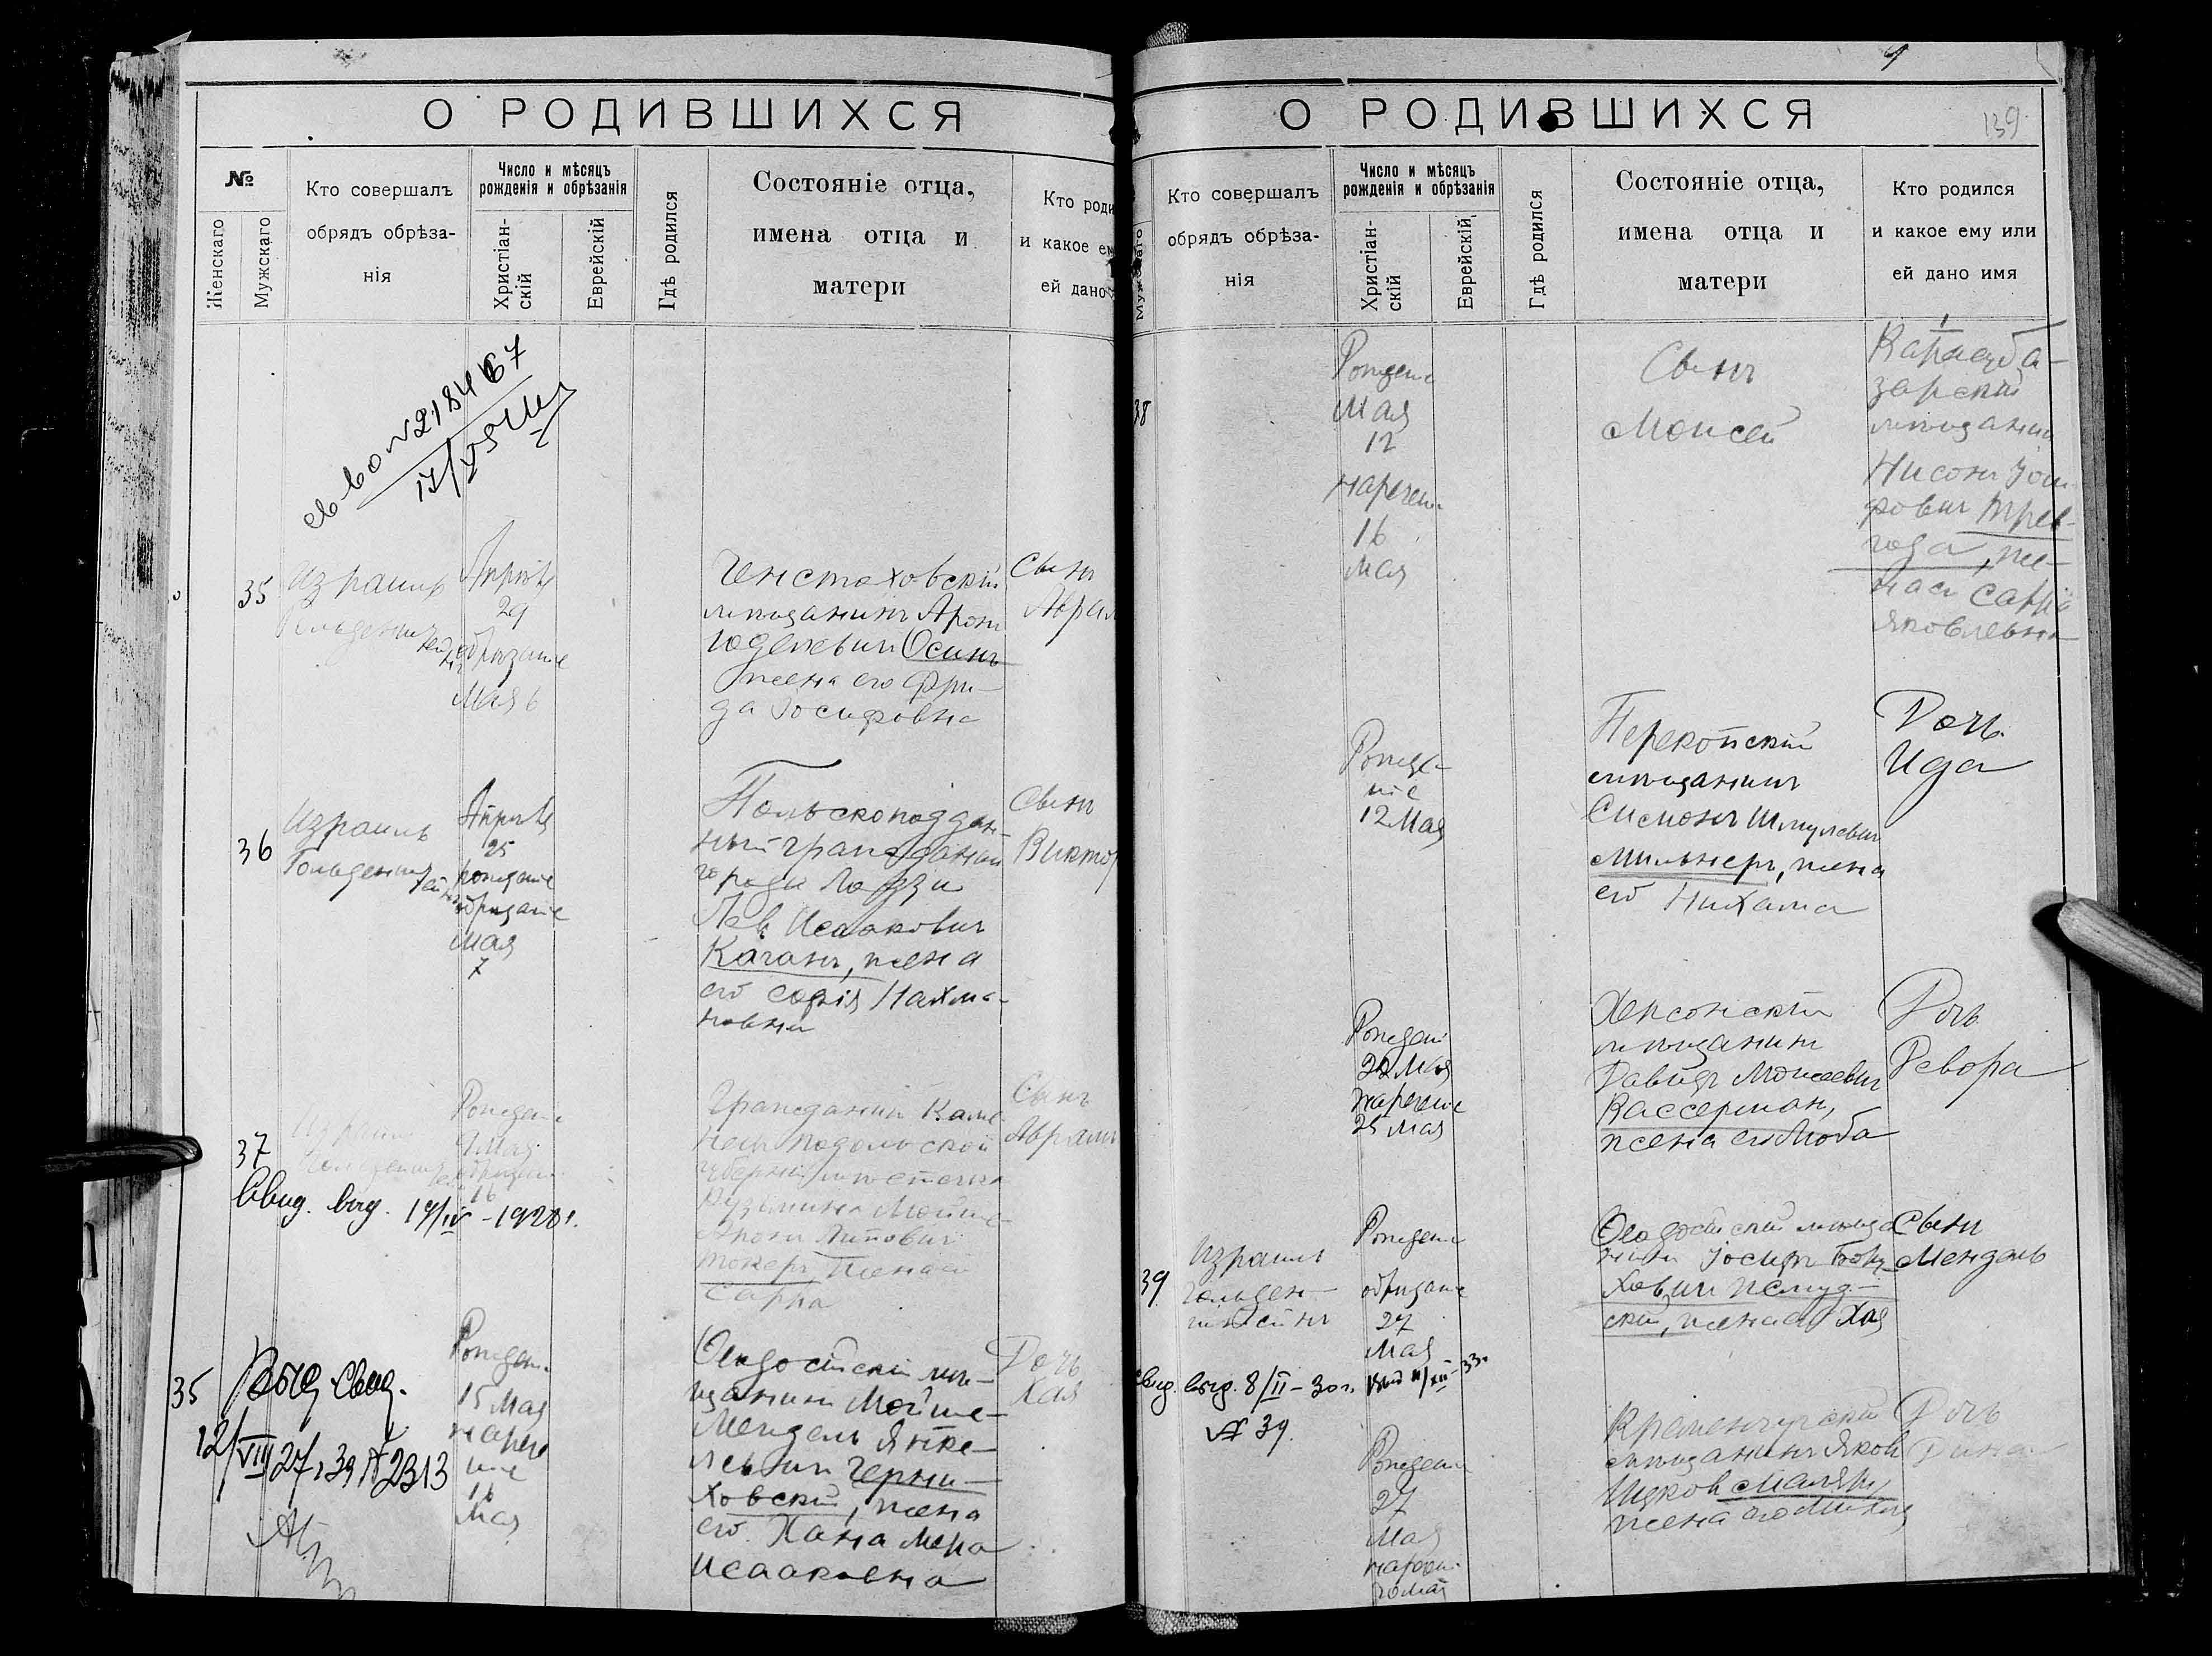 О РОДИВШИХСЯ
№
Женскаго
Мужскаго
Кто совершалъ
обрядъ обрѣза-
нія
Число и мѣсяцъ
рожденія и обрѣзанія
Христіан-
скій
Еврейскій
Гдѣ родился
Состояніе отца,
имена отца и
матери
Кто роди
и какое ем
ей дано
35
Израиль
Апрѣль
29
обрѣзаніе
Мая 6
Ченстоховскій
мѣщанинъ Аронъ
Юделевичъ Осинъ
жена его Фри-
да Іосифовна
Сынъ
Абрам
36
Израиль
Гольденштейнъ
Апрѣль
25
рожденіе
обрѣзаніе
Мая
7
Польскоподдан-
ный гражданин
города Лодзи
Лев Исаакович
Каганъ, жена
его Софія Нахма-
новна
Сынъ
Виктор
37
Израиль
Рожденіе
9 Мая
16
Гражданин Каме-
нец Подольской
губерніи местечка
Кузьмина Мойше
Аронъ Липович
Токеръ жена
Сарра
Сынъ
Абрамъ
Свид. выд. 19/IV - 1928 г.
35
Выд. свид.
12/VIII 27 г. № 2313
Рожден.
15 Мая
нарече
ніе
16
Мая
Ѳеодосійскій мѣ-
щанинъ Мойше-
Мендель Янке-
левичъ Черни-
ховскій, жена
его Хана Мера
Исааковна
Дочь
Хая
О РОДИВШИХСЯ
139
Мужскаго
Кто совершалъ
обрядъ обрѣза-
нія
Число и мѣсяцъ
рожденія и обрѣзанія
Христіан-
скій
Еврейскій
Гдѣ родился
Состояніе отца,
имена отца и
матери
Кто родился
и какое ему или
ей дано имя
38
Рожденіе
Мая
12
наречен
16
Мая
Сынъ
Моисей
Карасуба-
зарскій
мѣщанин
Нисонъ Іоси-
фовичъ
жена
Сарра
Яковлевна
Рожде-
ніе
12 Мая
Перекопскій
мѣщанинъ
Симонъ Шмулевич
Мильнеръ, жена
его Нихама
Дочь
Ида
Рожден
22 Мая
наречение
25 Мая
Херсонскій
мѣщанинъ
Давидъ Моисеевич
Вассерман,
жена его Люба
Дочь
Девора
39
Израиль
Гольден-
штейнъ
Рожден
обрѣзаніе
27
Мая
Ѳеодосійскій мѣща-
нинъ Іосифъ
ский, жена его Хая
Сынъ
Мендель
Свид. выд. 8/II - 30 г.
№ 39.
Рожден
27
Мая
Кременчугскій
мѣщанинъ Яков
Ицков Маляръ,
жена его
Дочь
Дина